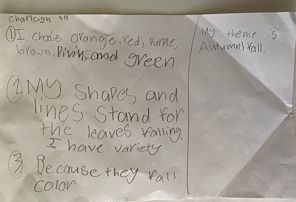 Charleigh 4N
① I chose orange, red, purple,
brown, Pink, and green.
② My Shapes and
lines Stand for
the leaves falling.
I have variety
③ Because they fall
color
My theme is
Autumn/fall.